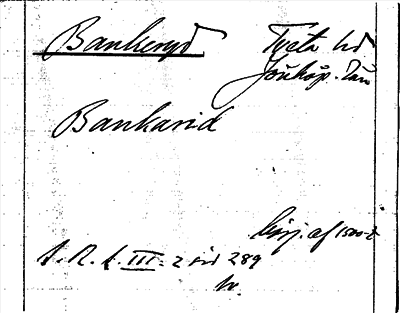 Bankeryd Tveta hd
Jönköp. län
Bankarid
börj. af 1500-t
S. R. A. III. 2 sid 289